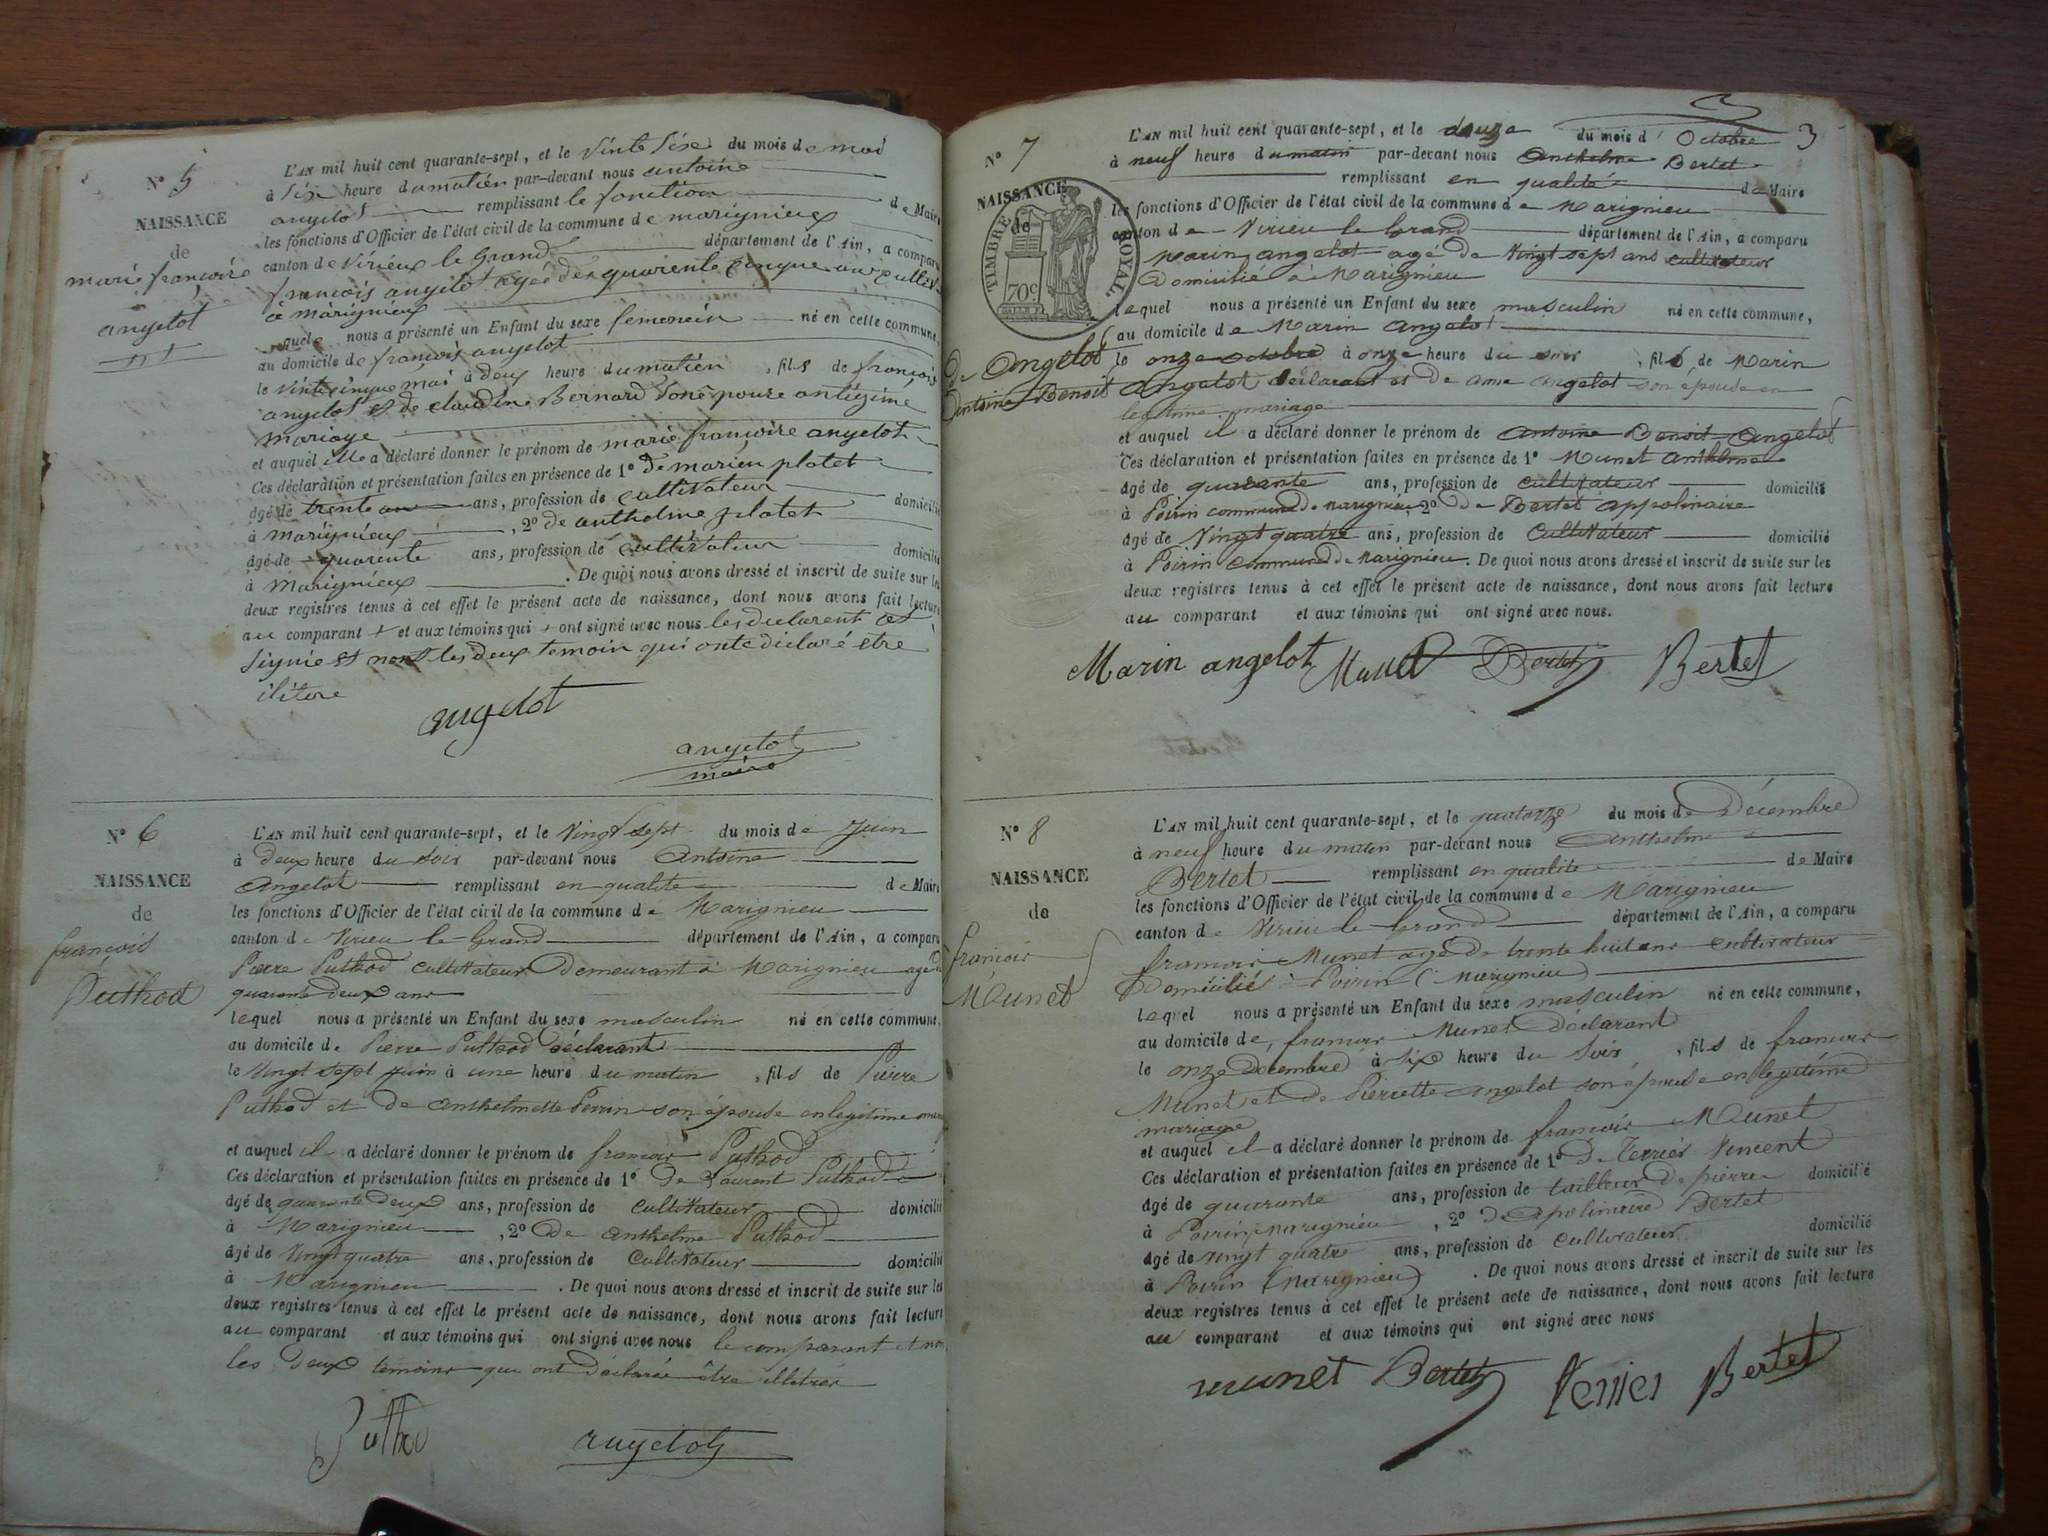 N° 5
NAISSANCE
de
marie françoise
angelot
L'AN mil huit cent quarante-sept, et le vinte sixe du mois de mai
à sixe heure du matien par-devant nous antoine
angelot remplissant le fonction de Maire
les fonctions d'Officier de l'état civil de la commune de marignieux
canton de virieux le Grand département de l'Ain, a comparu
françois angelot agé de quarente cinque ans
à marignieux
lequel nous a présenté un Enfant du sexe femenein né en cette commune,
au domicile de françois angelot
le vinte cinque mai à deux heure du matien, fils de françois
angelot et de claudine Bernard
mariage
et auquel ille a déclaré donner le prénom de marie françoise angelot
Ces déclaration et présentation faites en présence de 1° de marieu platet
âgé de trente an ans, profession de cultivateur domicilié
à marignieux, 2° de anthelme platet
âgé de quarente ans, profession de cultivateur domicilié
à Marignieux. De quoi nous avons dressé et inscrit de suite sur les
deux registres tenus à cet effet le présent acte de naissance, dont nous avons fait lecture
au comparant et aux témoins qui ont signé avec nous les declarent et
signie et nont les deux temoin qui onte diclaré etre
iliterre
angelot
angelot
maire
N° 6
NAISSANCE
de
françois
Puthod
L'AN mil huit cent quarante-sept, et le vingt sept du mois de Juin
à deux heure du soir par-devant nous Antoine
Angelot remplissant en qualite de Maire
les fonctions d'Officier de l'état civil de la commune de Marignieu
canton de Virieu le Grand département de l'Ain, a comparu
Pierre Puthod cultivateur Demeurant à Marignieu agé de
quarante deux ans
lequel nous a présenté un Enfant du sexe masculin né en cette commune,
au domicile de Pierre Puthod déclarant
le vingt sept juin à une heure du matin, fils de Pierre
Puthod et de anthelmette Perrin son épouse en legitime
et auquel il a déclaré donner le prénom de françois Puthod
Ces déclaration et présentation faites en présence de 1° De Laurent Puthod
âgé de quarante deux ans, profession de cultivateur domicilié
à Marignieu, 2° De anthelme Puthod
âgé de vingt quatre ans, profession de cultivateur domicilié
à Marignieu. De quoi nous avons dressé et inscrit de suite sur les
deux registres tenus à cet effet le présent acte de naissance, dont nous avons fait lecture
au comparant et aux témoins qui ont signé avec nous le comparant et non
les deux témoins qui ont déclarée être illétrés
Puthod
angelot
3
N° 7
NAISSANCE
de
TIMBRE ROYAL
70c
De Angelot
Antoine Benoit
L'AN mil huit cent quarante-sept, et le douze du mois d' Octobre
à neuf heure du matin par-devant nous Anthelme Bertet
remplissant en qualité de Maire
les fonctions d'Officier de l'état civil de la commune de Marignieu
canton de Virieu le Grand département de l'Ain, a comparu
Marin angelot agé de vingt sept ans cultivateur
Domicilié à Marignieu
lequel nous a présenté un Enfant du sexe masculin né en cette commune,
au domicile de Marin Angelot
le onze octobre à onze heure du soir, fils de Marin
Angelot déclarant et de anne angelot son épouse en
legitime mariage
et auquel il a déclaré donner le prénom de Antoine Benoit Angelot
Ces déclaration et présentation faites en présence de 1° Munet Anthelme
âgé de quarante ans, profession de cultivateur domicilié
à Poirin commune de marignieu, 2° De Bertet appolinaire
âgé de vingt quatre ans, profession de Cultivateur domicilié
à Poirin commune de Marignieu. De quoi nous avons dressé et inscrit de suite sur les
deux registres tenus à cet effet le présent acte de naissance, dont nous avons fait lecture
au comparant et aux témoins qui ont signé avec nous.
Marin angelot Munet Bertet Bertet
N° 8
NAISSANCE
de
françois
Munet
L'AN mil huit cent quarante-sept, et le quatorze du mois de Décembre
à neuf heure du matin par-devant nous Anthelme
Bertet remplissant en qualite de Maire
les fonctions d'Officier de l'état civil de la commune de Marignieu
canton de Virieu le Grand département de l'Ain, a comparu
françois Munet agé de trente huit ans cultivateur
Domicilié à Poirin (Marignieu)
lequel nous a présenté un Enfant du sexe masculin né en cette commune,
au domicile de, françois Munet déclarant
le onze Décembre à six heure du soir, fils de françois
Munet et de Pierrette angelot son épouse en legitime
mariage
et auquel il a déclaré donner le prénom de françois Munet
Ces déclaration et présentation faites en présence de 1° De Terrier Vincent
âgé de quarante ans, profession de tailleur de pierre domicilié
à Poirin Marignieu, 2° De apolinaire Bertet
âgé de vingt quatre ans, profession de cultivateur domicilié
à Poirin (Marignieu). De quoi nous avons dressé et inscrit de suite sur les
deux registres tenus à cet effet le présent acte de naissance, dont nous avons fait lecture
au comparant et aux témoins qui ont signé avec nous
munet Bertet Terrier Bertet